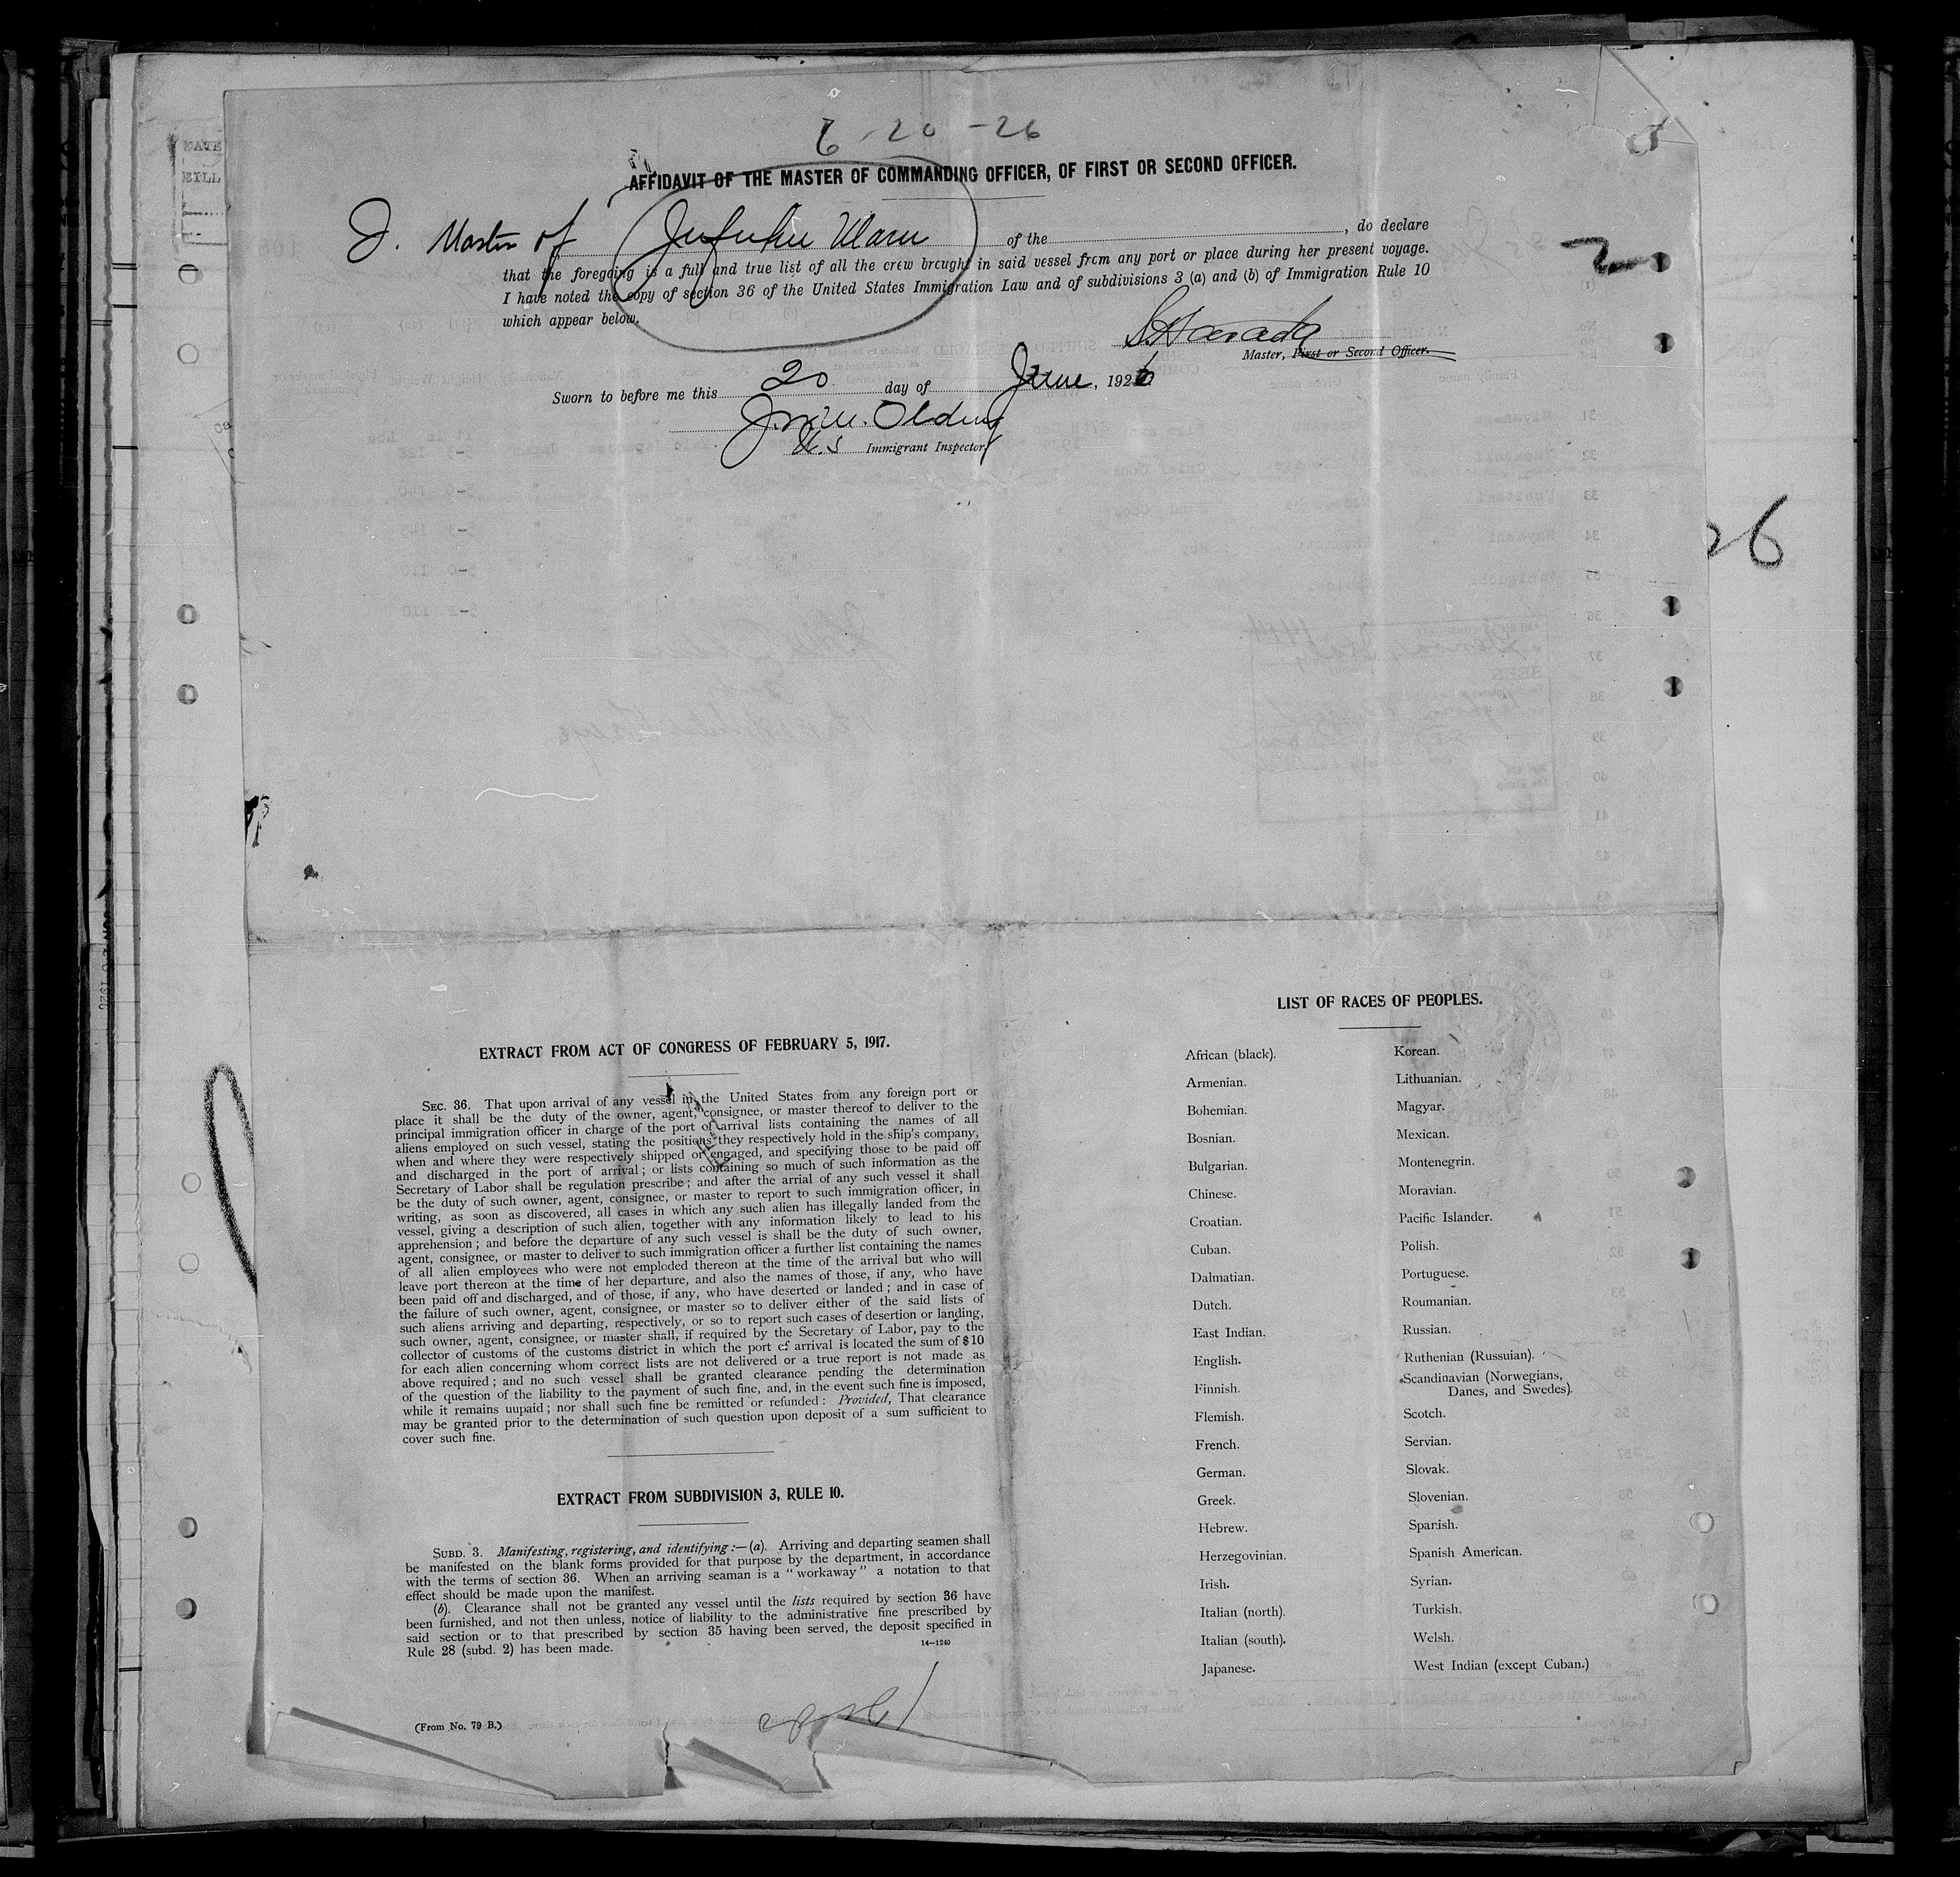 6-20-26
AFFIDAVIT OF THE MASTER OF COMMANDING OFFICER, OF FIRST OR SECOND OFFICER.
I. Master of Jufuku Maru of the , do declare
that the foregoing is a full and true list of all the crew brought in said vessel from any port or place during her present voyage.
I have noted the copy of section 36 of the United States Immigration Law and of subdivisions 3 (a) and (b) of Immigration Rule 10
which appear below.
S. Harada
Master, First or Second Officer.
Sworn to before me this 20 day of June, 1926
Olding
U.S Immigrant Inspector
2
26
EXTRACT FROM ACT OF CONGRESS OF FEBRUARY 5, 1917.
SEC. 36. That upon arrival of any vessel in the United States from any foreign port or
place it shall be the duty of the owner, agent, consignee, or master thereof to deliver to the
principal immigration officer in charge of the port of arrival lists containing the names of all
aliens employed on such vessel, stating the positions they respectively hold in the ship's company,
when and where they were respectively shipped or engaged, and specifying those to be paid off
and discharged in the port of arrival; or lists containing so much of such information as the
Secretary of Labor shall be regulation prescribe; and after the arrial of any such vessel it shall
be the duty of such owner, agent, consignee, or master to report to such immigration officer, in
writing, as soon as discovered, all cases in which any such alien has illegally landed from the
vessel, giving a description of such alien, together with any information likely to lead to his
apprehension; and before the departure of any such vessel is shall be the duty of such owner,
agent, consignee, or master to deliver to such immigration officer a further list containing the names
of all alien employees who were not emploded thereon at the time of the arrival but who will
leave port thereon at the time of her departure, and also the names of those, if any, who have
been paid off and discharged, and of those, if any, who have deserted or landed; and in case of
the failure of such owner, agent, consignee, or master so to deliver either of the said lists of
such aliens arriving and departing, respectively, or so to report such cases of desertion or landing,
such owner, agent, consignee, or master shall, if required by the Secretary of Labor, pay to the
collector of customs of the customs district in which the port of arrival is located the sum of $10
for each alien concerning whom correct lists are not delivered or a true report is not made as
above required; and no such vessel shall be granted clearance pending the determination
of the question of the liability to the payment of such fine, and, in the event such fine is imposed,
while it remains uupaid; nor shall such fine be remitted or refunded: Provided, That clearance
may be granted prior to the determination of such question upon deposit of a sum sufficient to
cover such fine.
EXTRACT FROM SUBDIVISION 3, RULE 10.
SUBD. 3. Manifesting, registering, and identifying:—(a). Arriving and departing seamen shall
be manifested on the blank forms provided for that purpose by the department, in accordance
with the terms of section 36. When an arriving seaman is a "workaway" a notation to that
effect should be made upon the manifest.
(b). Clearance shall not be granted any vessel until the lists required by section 36 have
been furnished, and not then unless, notice of liability to the administrative fine prescribed by
said section or to that prescribed by section 35 having been served, the deposit specified in
Rule 28 (subd. 2) has been made.
14—1240
(From No. 79 B.)
LIST OF RACES OF PEOPLES.
African (black).
Armenian.
Bohemian.
Bosnian.
Bulgarian.
Chinese.
Croatian.
Cuban.
Dalmatian.
Dutch.
East Indian.
English.
Finnish.
Flemish.
French.
German.
Greek.
Hebrew.
Herzegovinian.
Irish.
Italian (north).
Italian (south).
Japanese.
Korean.
Lithuanian.
Magyar.
Mexican.
Montenegrin.
Moravian.
Pacific Islander.
Polish.
Portuguese.
Roumanian.
Russian.
Ruthenian (Russuian).
Scandinavian (Norwegians,
Danes, and Swedes).
Scotch.
Servian.
Slovak.
Slovenian.
Spanish.
Spanish American.
Syrian.
Turkish.
Welsh.
West Indian (except Cuban.)